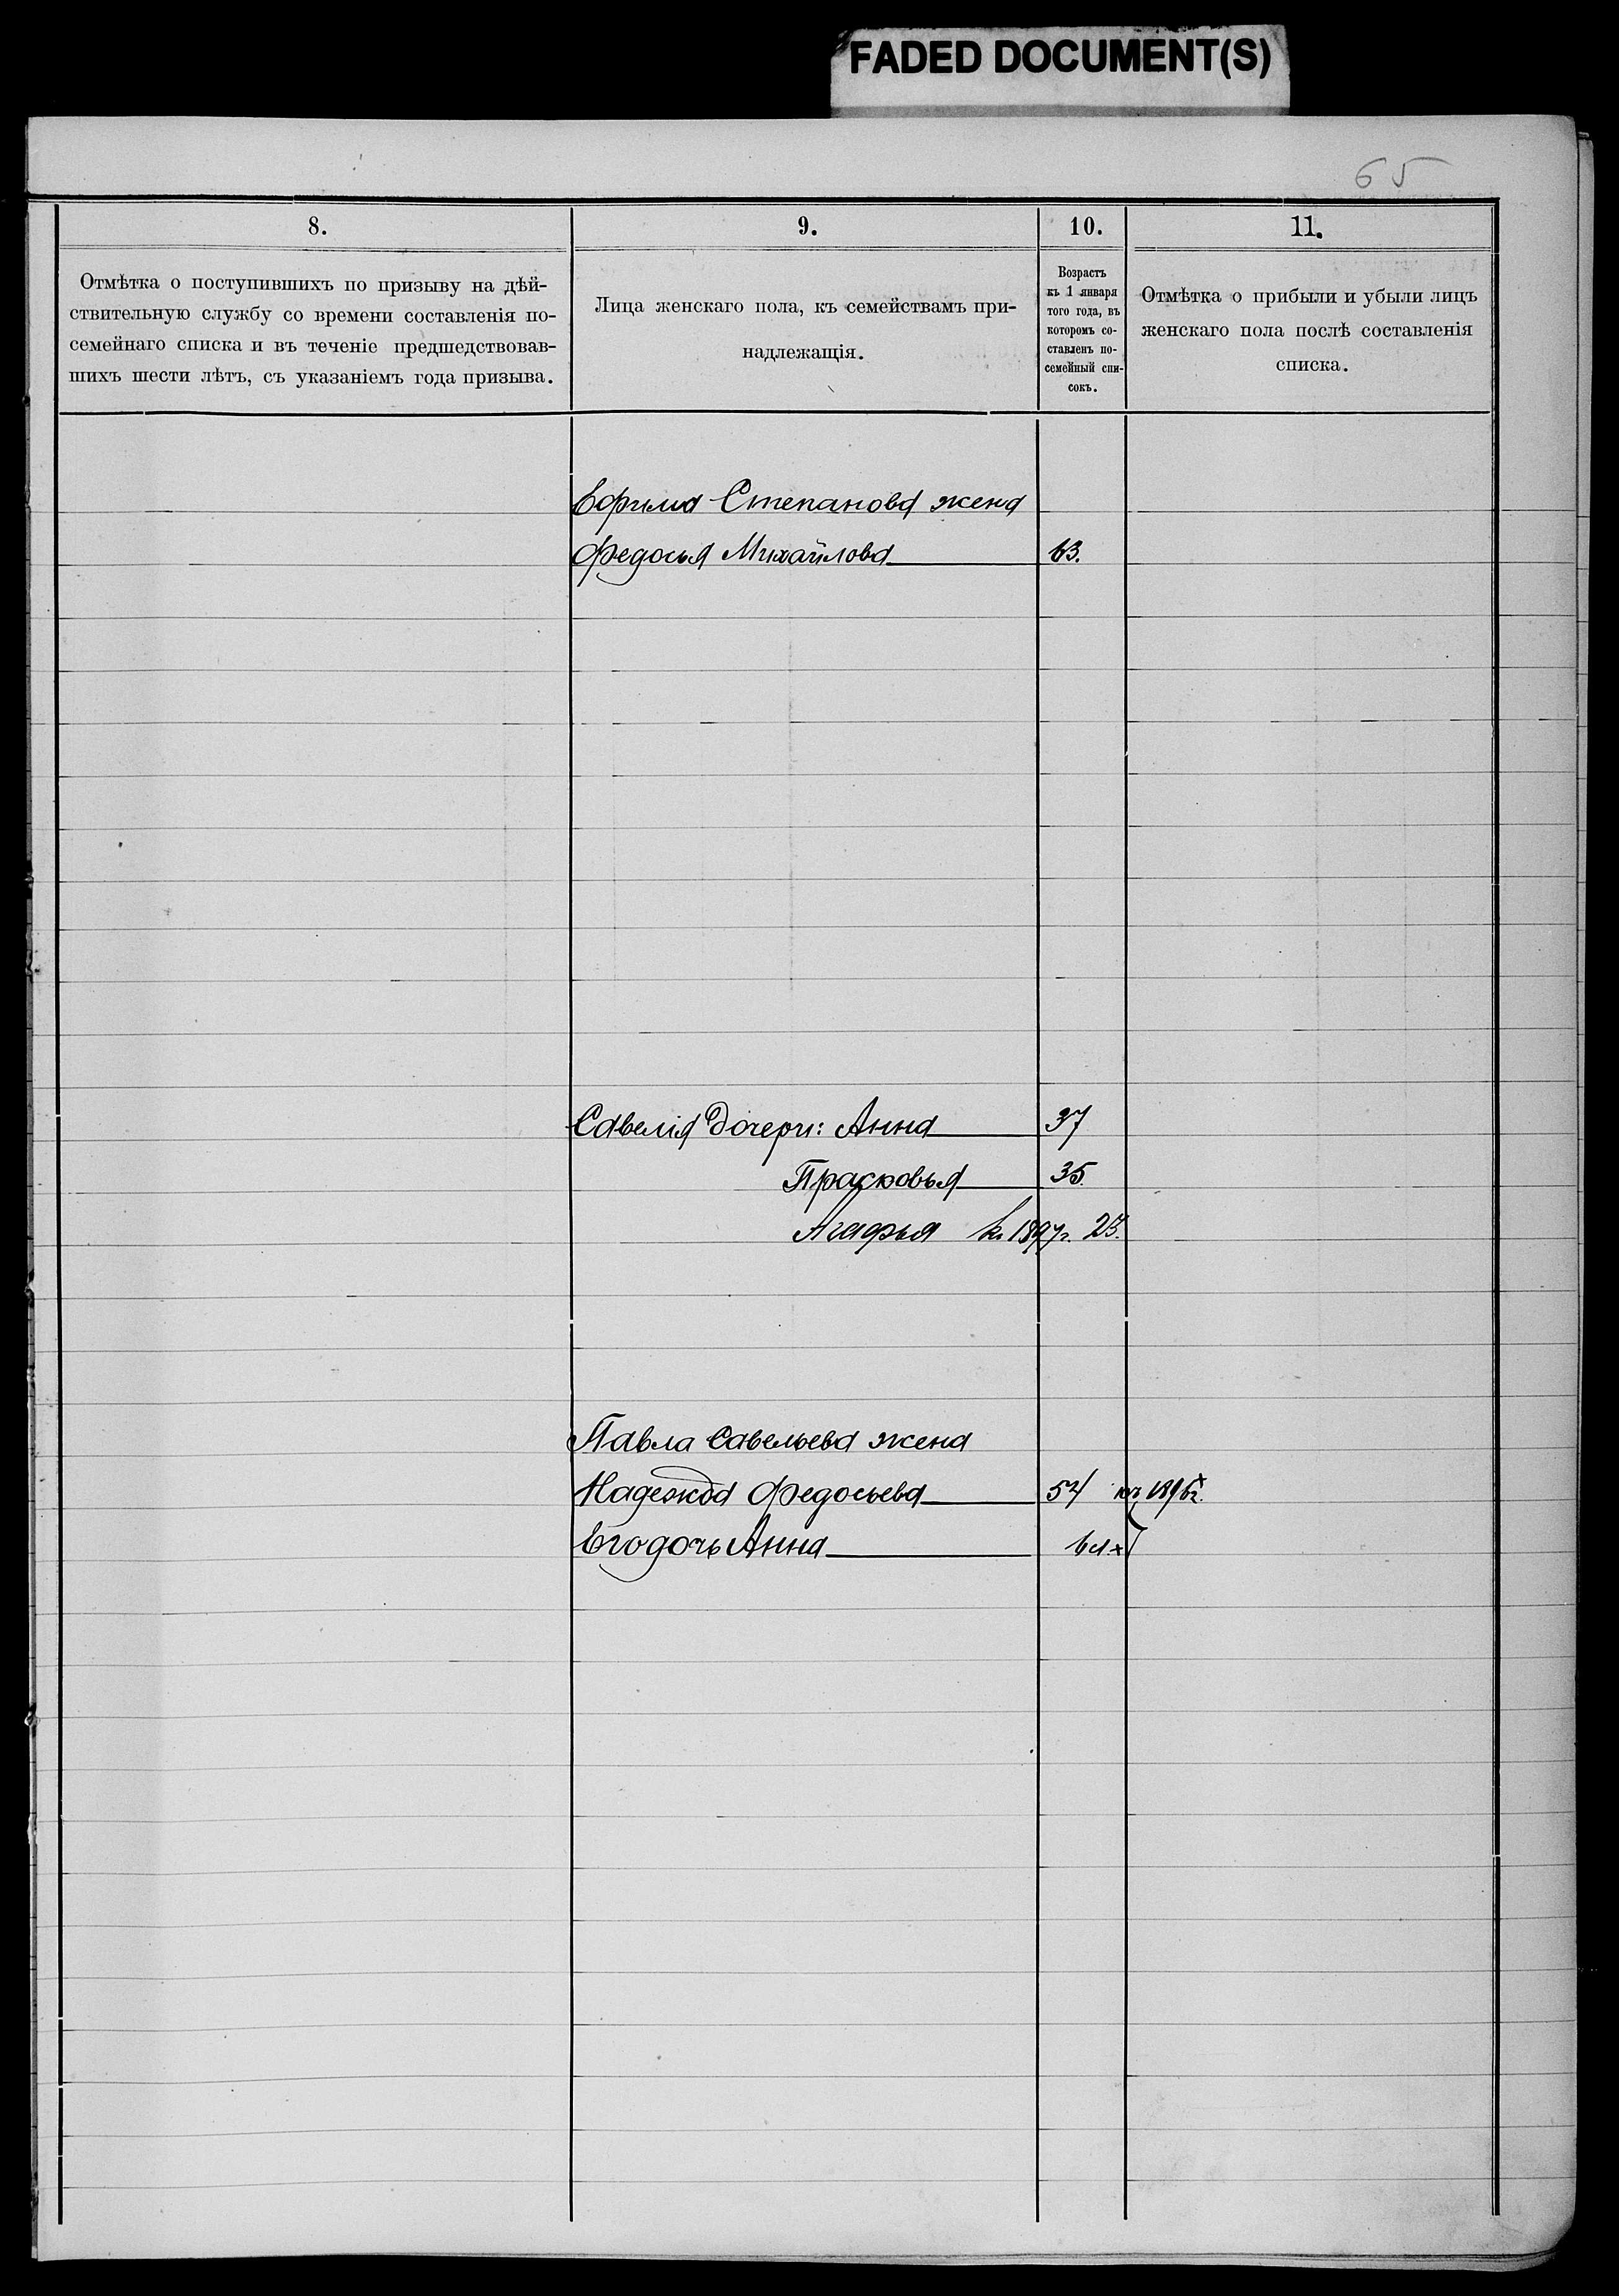 FADED DOCUMENT(S)
65
8.
9.
10.
11.
Отмѣтка о поступившихъ по призыву на дѣй-
ствительную службу со времени составленія по-
семейнаго списка и въ теченіе предшедствовав-
шихъ шести лѣтъ, съ указаніемъ года призыва.
Лица женскаго пола, къ семействамъ при-
надлежащія.
Возрастъ
къ 1 января
того года, въ
которомъ со-
ставленъ по-
семейный спи-
сокъ.
Отмѣтка о прибыли и убыли лицъ
женскаго пола послѣ составленія
списка.
Ефима Степанова жена
Федосья Михайлова 63.
Савелія дочери: Анна 37
Прасковья 35.
Агафья к 1897 г. 23.
Павла Савельева жена
Надежда Федосьева 54 къ 1896 г.
Его дочь Анна